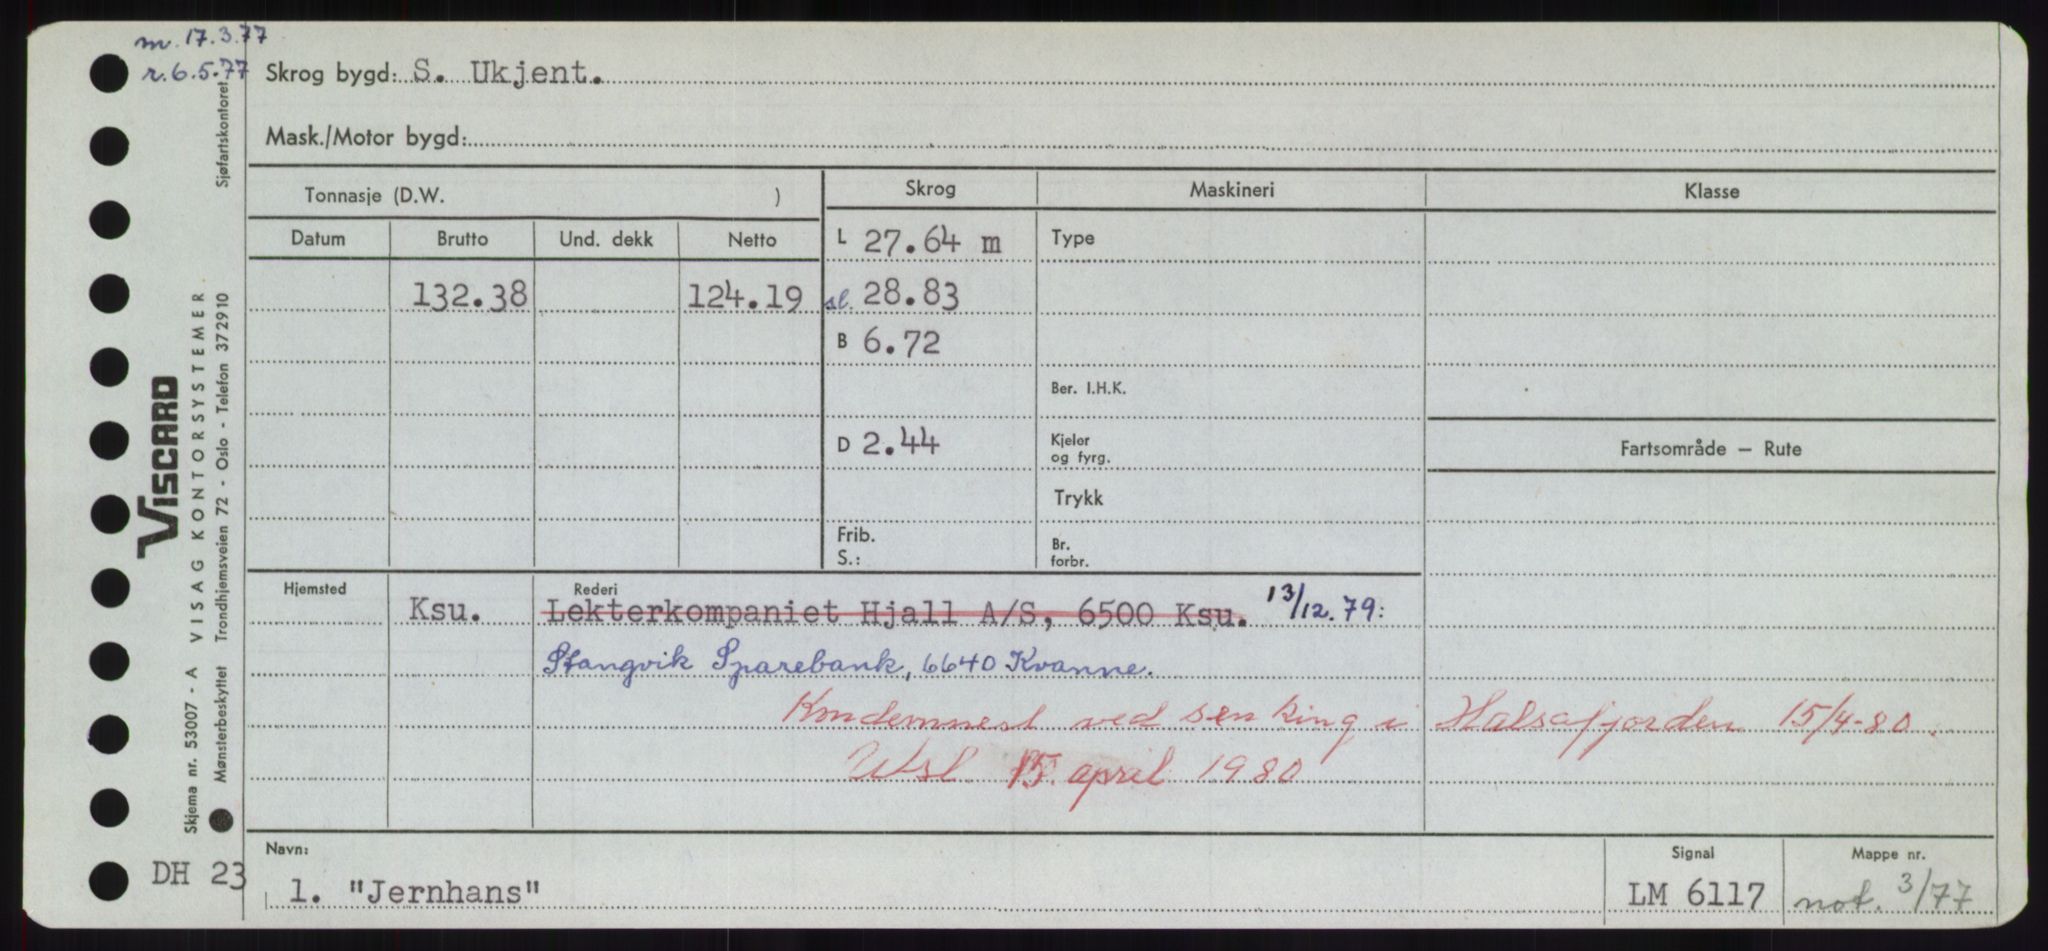 m. 17.3.77
r. 6.5.77
Skrog bygd: S. Ukjent.
Mask./Motor bygd:
Tonnasje (D.W. )
Skrog
Maskineri
Klasse
Datum
Brutto
Und. dekk
Netto
L 27.64 m
Type
132.38
124.19
sl. 28.83
B 6.72
Ber. I.H.K.
D 2.44
Kjeler
og fyrg.
Fartsområde — Rute
Trykk
Frib.
S.:
Br.
forbr.
Hjemsted
Rederi
Ksu.
Lekterkompaniet Hjall A/S, 6500 Ksu. 13/12.79:
Stangvik Sparebank, 6640 Kvanne.
Kondemnert ved senking i Halsafjorden 15/4-80.
Utsl. 15. april 1980
Navn:
1. "Jernhans"
Signal
LM 6117
Mappe nr.
not. 3/77
DH 23
Skjema nr. 53007 - A VISAG KONTORSYSTEMER
VISCARD
Mønsterbeskyttet Trondhjemsveien 72 - Oslo - Telefon 372910
Sjøfartskontoret